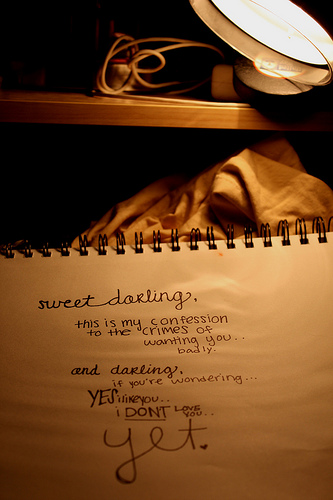 sweet darling,
this is my confession
to the crimes of
wanting you..
badly.
and darling,
if you're wondering...
YES i like you..
i DONT LOVE
YOU..
yet.